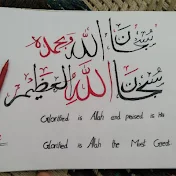 سُبْحَانَ اللّٰهِ وَبِحَمْدِهِ
سُبْحَانَ اللّٰهِ الْعَظِيمِ
Glorified is Allah and praised is He
Glorified is Allah the Most Great